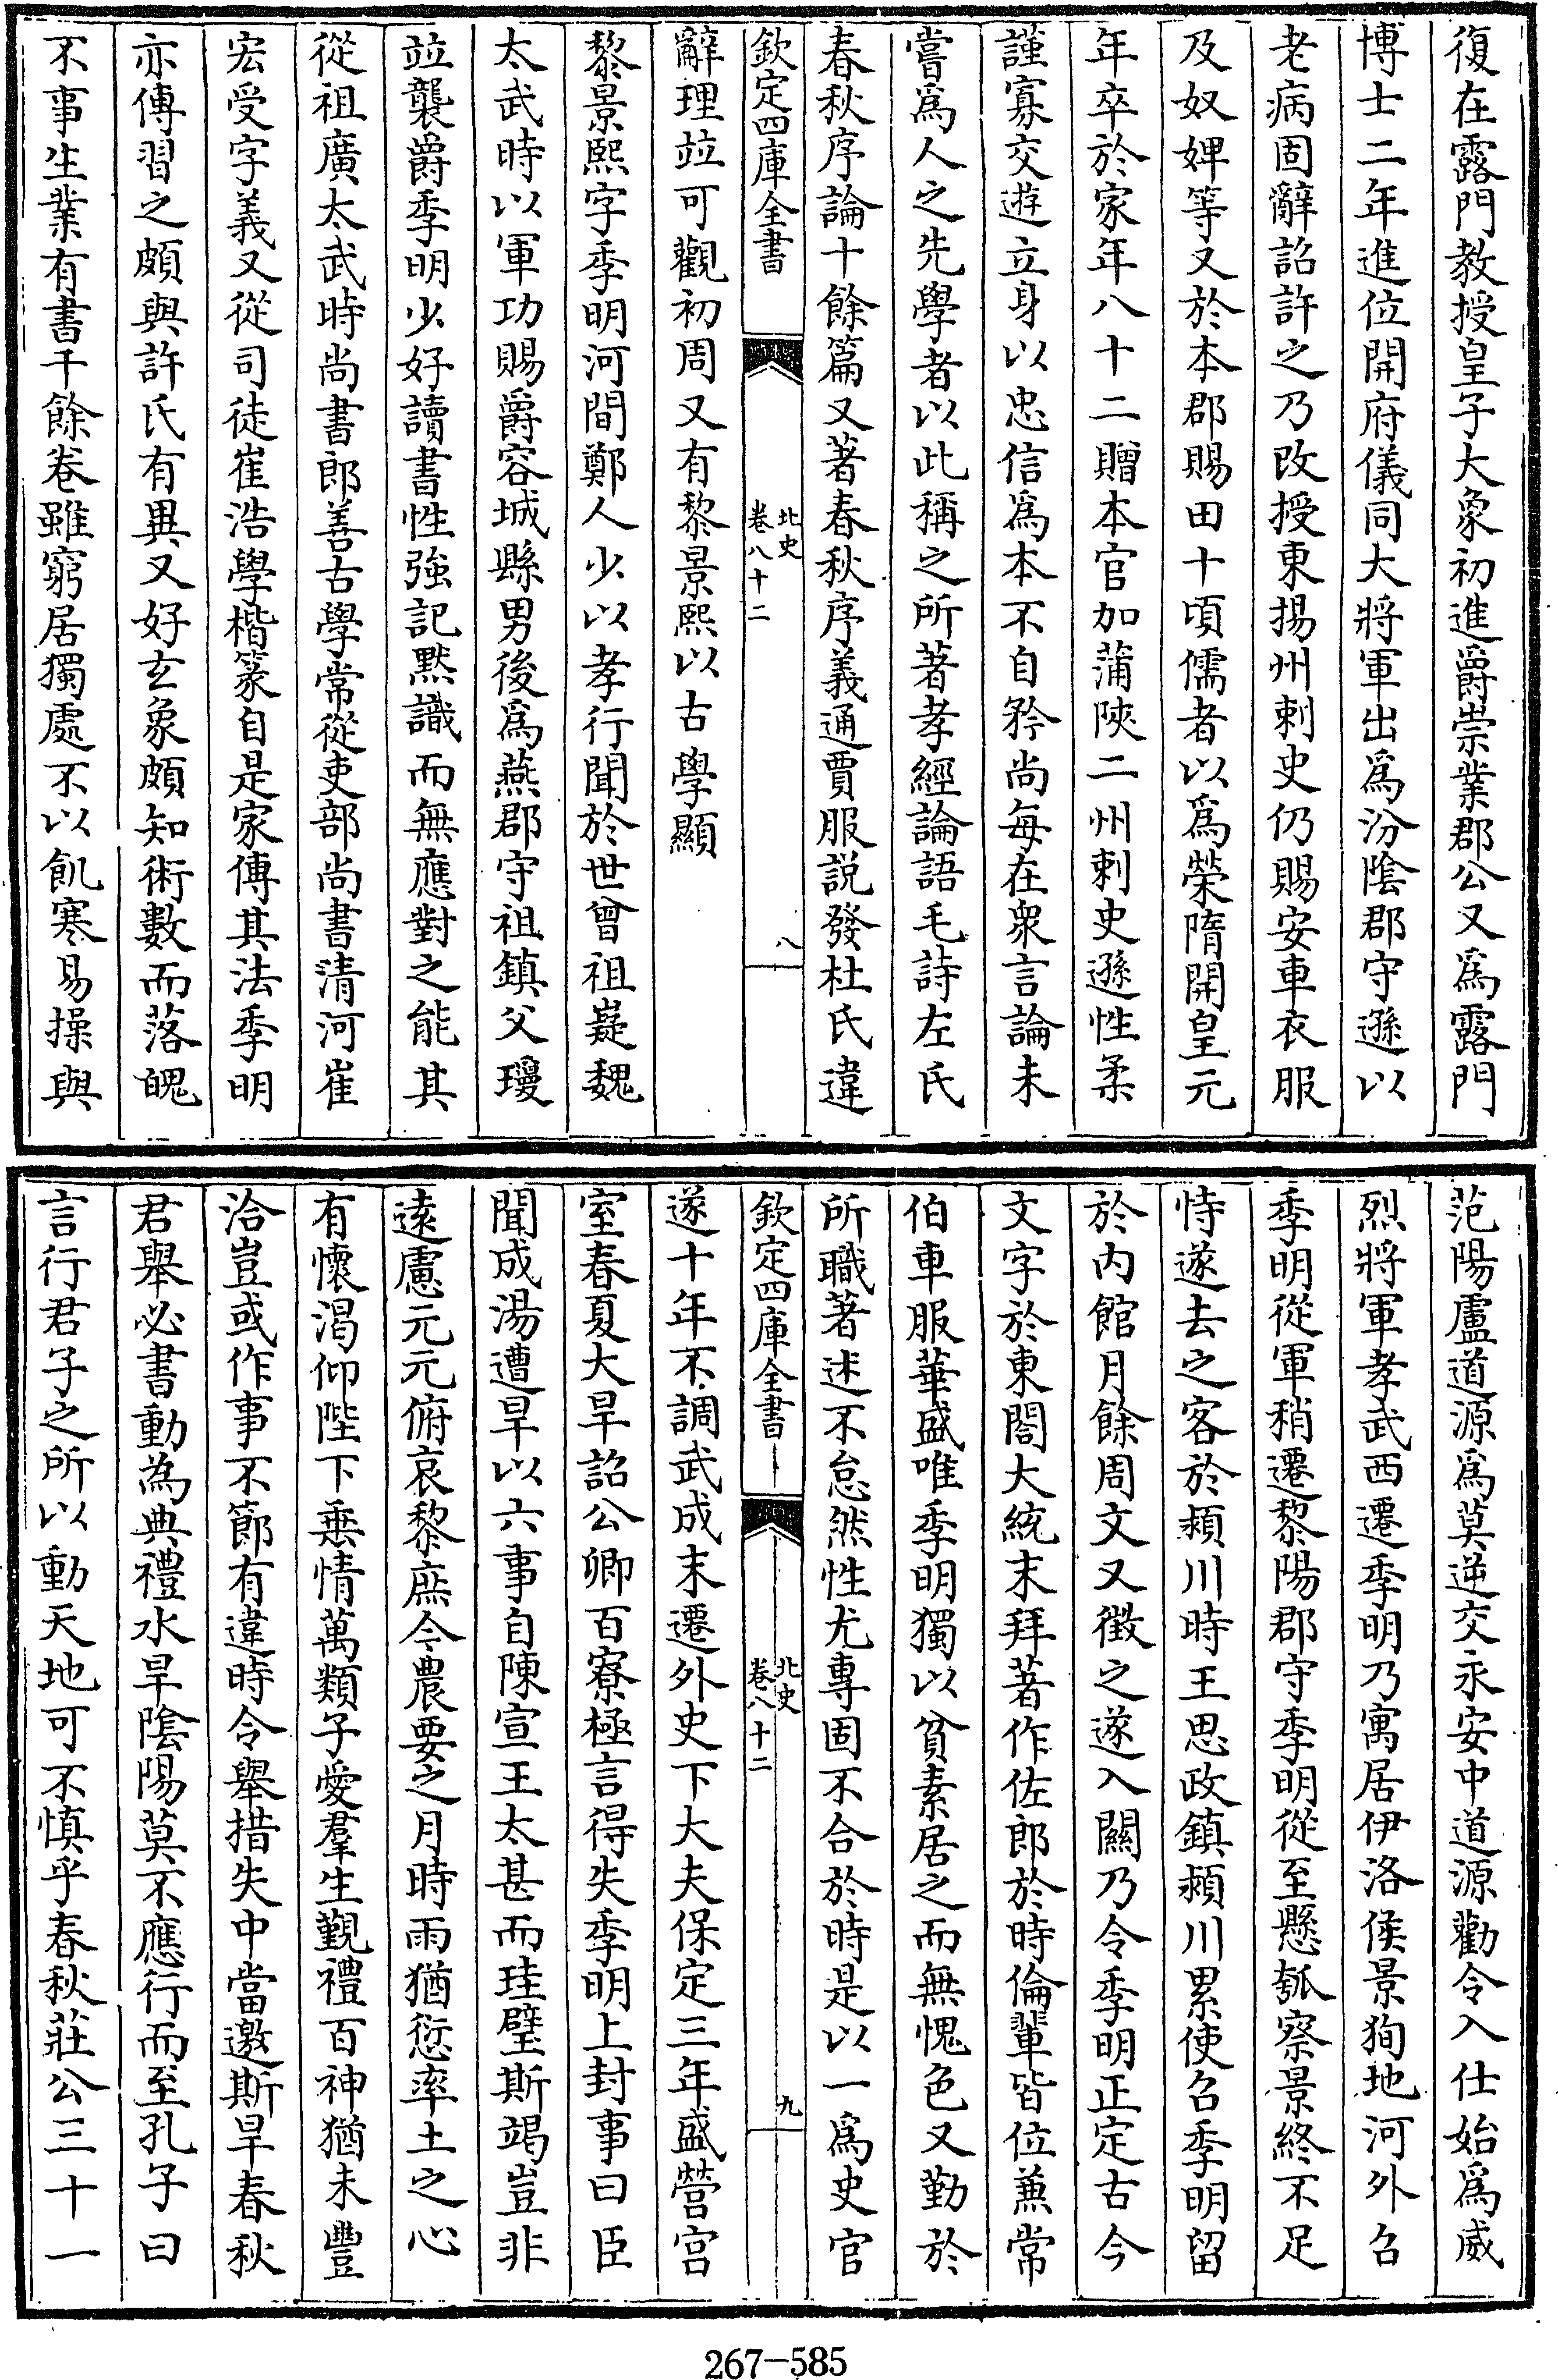 復在露門教授皇子大象初進爵崇業郡公又爲露門
博士二年進位開府儀同大將軍出爲汾陰郡守遜以
老病固辭詔許之乃改授東揚州刺史仍賜安車衣服
及奴婢等又於本郡賜田十頃儒者以爲榮隋開皇元
年卒於家年八十二贈本官加蒲陜二州刺史遜性柔
謹寡交遊立身以忠信爲本不自矜尚每在衆言論未
嘗爲人之先學者以此稱之所著孝經論語毛詩左氏
春秋序論十餘篇又著春秋序義通賈服説發杜氏違
欽定四庫全書
北史
卷八十二
八
辭理竝可觀初周又有黎景熙以古學顯
黎景熙字季明河間鄭人少以孝行聞於世曾祖嶷魏
太武時以軍功賜爵容城縣男後爲燕郡守祖鎮父瓊
竝襲爵季明少好讀書性強記黙識而無應對之能其
從祖廣太武時尚書郎善古學常從吏部尚書清河崔
宏受字義又從司徒崔浩學楷篆自是家傳其法季明
亦傳習之頗與許氏有異又好玄象頗知術數而落魄
不事生業有書千餘巻雖窮居獨處不以飢寒易操與
范陽盧道源爲莫逆交永安中道源勸令入仕始爲威
烈將軍孝武西遷季明乃寓居伊洛侯景狥地河外召
季明從軍稍遷黎陽郡守季明從至懸瓠察景終不足
恃遂去之客於潁川時王思政鎮潁川累使召季明留
於内館月餘周文又徴之遂入關乃令季明正定古今
文字於東閣大統末拜著作佐郎於時倫輩皆位兼常
伯車服華盛唯季明獨以貧素居之而無愧色又勤於
所職著述不怠然性尤專固不合於時是以一爲史官
欽定四庫全書
北史
卷八十二
九
遂十年不調武成末遷外史下大夫保定三年盛營宫
室春夏大旱詔公卿百寮極言得失季明上封事曰臣
聞成湯遭旱以六事自陳宣王太甚而珪璧斯竭豈非
遠慮元元俯哀黎庶今農要之月時雨猶愆率土之心
有懷渇仰陛下垂情萬類子愛羣生覲禮百神猶未豐
洽豈或作事不節有違時令舉措失中當邀斯旱春秋
君舉必書動為典禮水旱陰陽莫不應行而至孔子曰
言行君子之所以動天地可不慎乎春秋莊公三十一
267-585